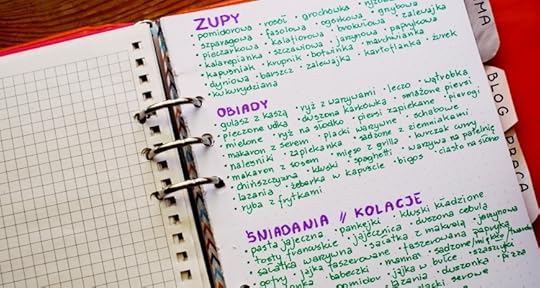 ZUPY
pomidorowa · rosół · grochówka
szparagowa · fasolowa · ogórkowa · grybowa
pieczarkowa · kalafiorowa · brokułowa · zalewajka
kalarepianka · szczawiowa · jarzynowa · paprykowa
kapuśniak · krupnik · botwinka · marchwianka
dyniowa · barszcz · zalewajka · kartoflanka · żurek
kukurydziana
OBIADY
gulasz z kaszą · ryż z warzywami · leczo · wątróbka
pieczone udka · duszona karkówka · smażone piersi
mielone · ryż na słodko · piersi zapiekane · pierogi
makaron z serem · placki warzywne · schabowe
naleśniki · zapiekanka · sadzone z ziemniakami
makaron z sosem · mięso z grilla · kurczak curry
chińszczyzna · kluski · spaghetti · warzywa na patelnię
lazania · żeberka w kapuście · bigos · ciasto na słono
ryba z frytkami
ŚNIADANIA // KOLACJE
pasta jajeczna · pankejki · kluski kładzione
tosty francuskie · jajecznica · duszona cebula
sałatka warzywna · sałatka z makreli · jarzynowa
gofry · jajka faszerowane · faszerowana papryka
babeczki · manna · sadzone/miękko/twardo
pomidory · jajka w bułce · szaszłyki
lazania · duszonka · pizza
placki serowe
MA
BLOG
PRACA